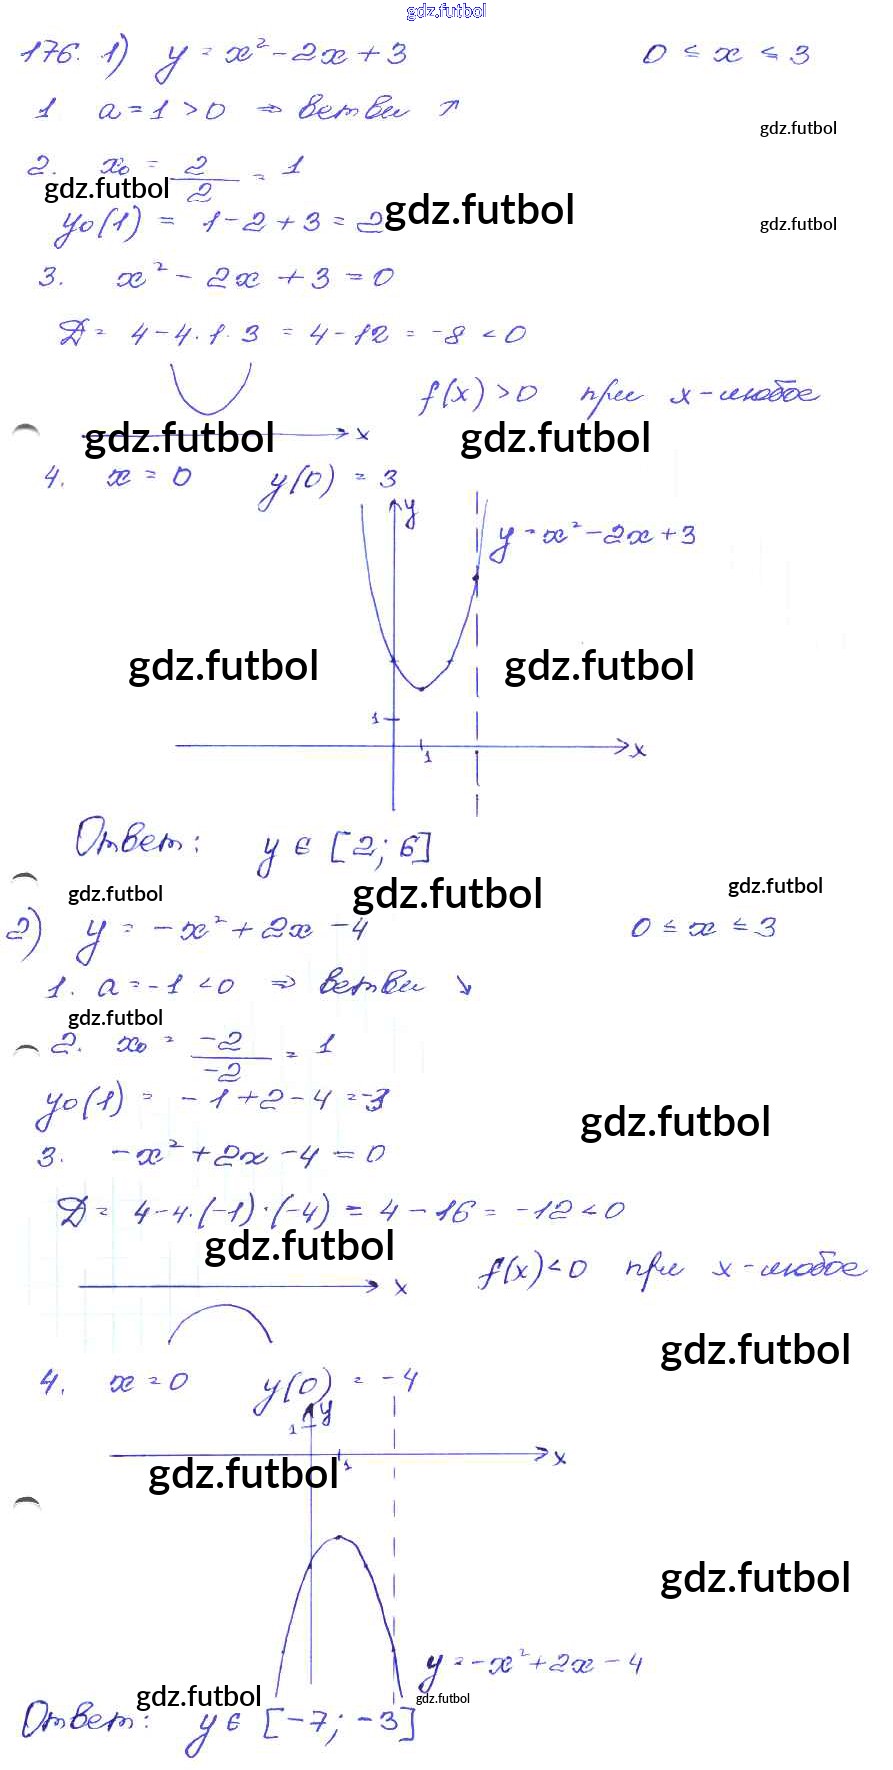 gdz.futbol
176. 1) y = x² - 2x + 3 0 ≤ x ≤ 3
1 a = 1 > 0 ⇒ ветви ↗
gdz.futbol
2. x₀ = 2/2 = 1
gdz.futbol
y₀(1) = 1 - 2 + 3 = 2
gdz.futbol gdz.futbol
3. x² - 2x + 3 = 0
D = 4 - 4·1·3 = 4 - 12 = -8 < 0
f(x) > 0 при x - любое
x
gdz.futbol gdz.futbol
4. x = 0 y(0) = 3
y
y = x² - 2x + 3
gdz.futbol gdz.futbol
1
1 x
Ответ: y ∈ [2; 6]
gdz.futbol gdz.futbol gdz.futbol
2) y = -x² + 2x - 4 0 ≤ x ≤ 3
1. a = -1 < 0 ⇒ ветви ↘
gdz.futbol
2. x₀ = -2/-2 = 1
y₀(1) = -1 + 2 - 4 = -3
gdz.futbol
3. -x² + 2x - 4 = 0
D = 4 - 4·(-1)·(-4) = 4 - 16 = -12 < 0
gdz.futbol
x f(x) < 0 при x - любое
gdz.futbol
4. x = 0 y(0) = -4
y
1
1 x
gdz.futbol
gdz.futbol
y = -x² + 2x - 4
gdz.futbol gdz.futbol
Ответ: y ∈ [-7; -3]